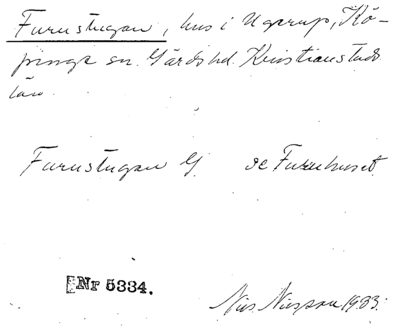 Furustugan, hus i Ugerup, Kö-
pinge sn. Gärds hd. Kristianstads
län.
Furustugan G se Furuhuset.
Nr 5334.
Nils Nilsson 1983.